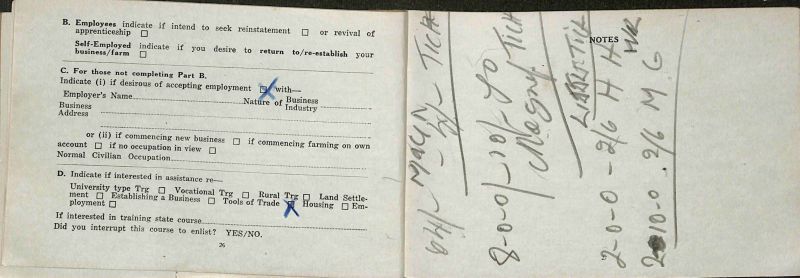 B. Employees indicate if intend to seek reinstatement ☐ or revival of
apprenticeship ☐
Self-Employed indicate if you desire to return to/re-establish your
business/farm ☐
C. For those not completing Part B.
Indicate (i) if desirous of accepting employment ☒ with—
Employer's Name Nature of Business
Industry
Business
Address
or (ii) if commencing new business ☐ if commencing farming on own
account ☐ if no occupation in view ☐
Normal Civilian Occupation
D. Indicate if interested in assistance re—
University type Trg ☐ Vocational Trg ☐ Rural Trg ☐ Land Settle-
ment ☐ Establishing a Business ☐ Tools of Trade ☒ Housing ☐ Em-
ployment ☐
If interested in training state course
Did you interrupt this course to enlist? YES/NO.
26
NOTES
TICH
8-0-0/-10/-
TICH
2-0-0-2/6 H H
2-10-0. 2/6 M G